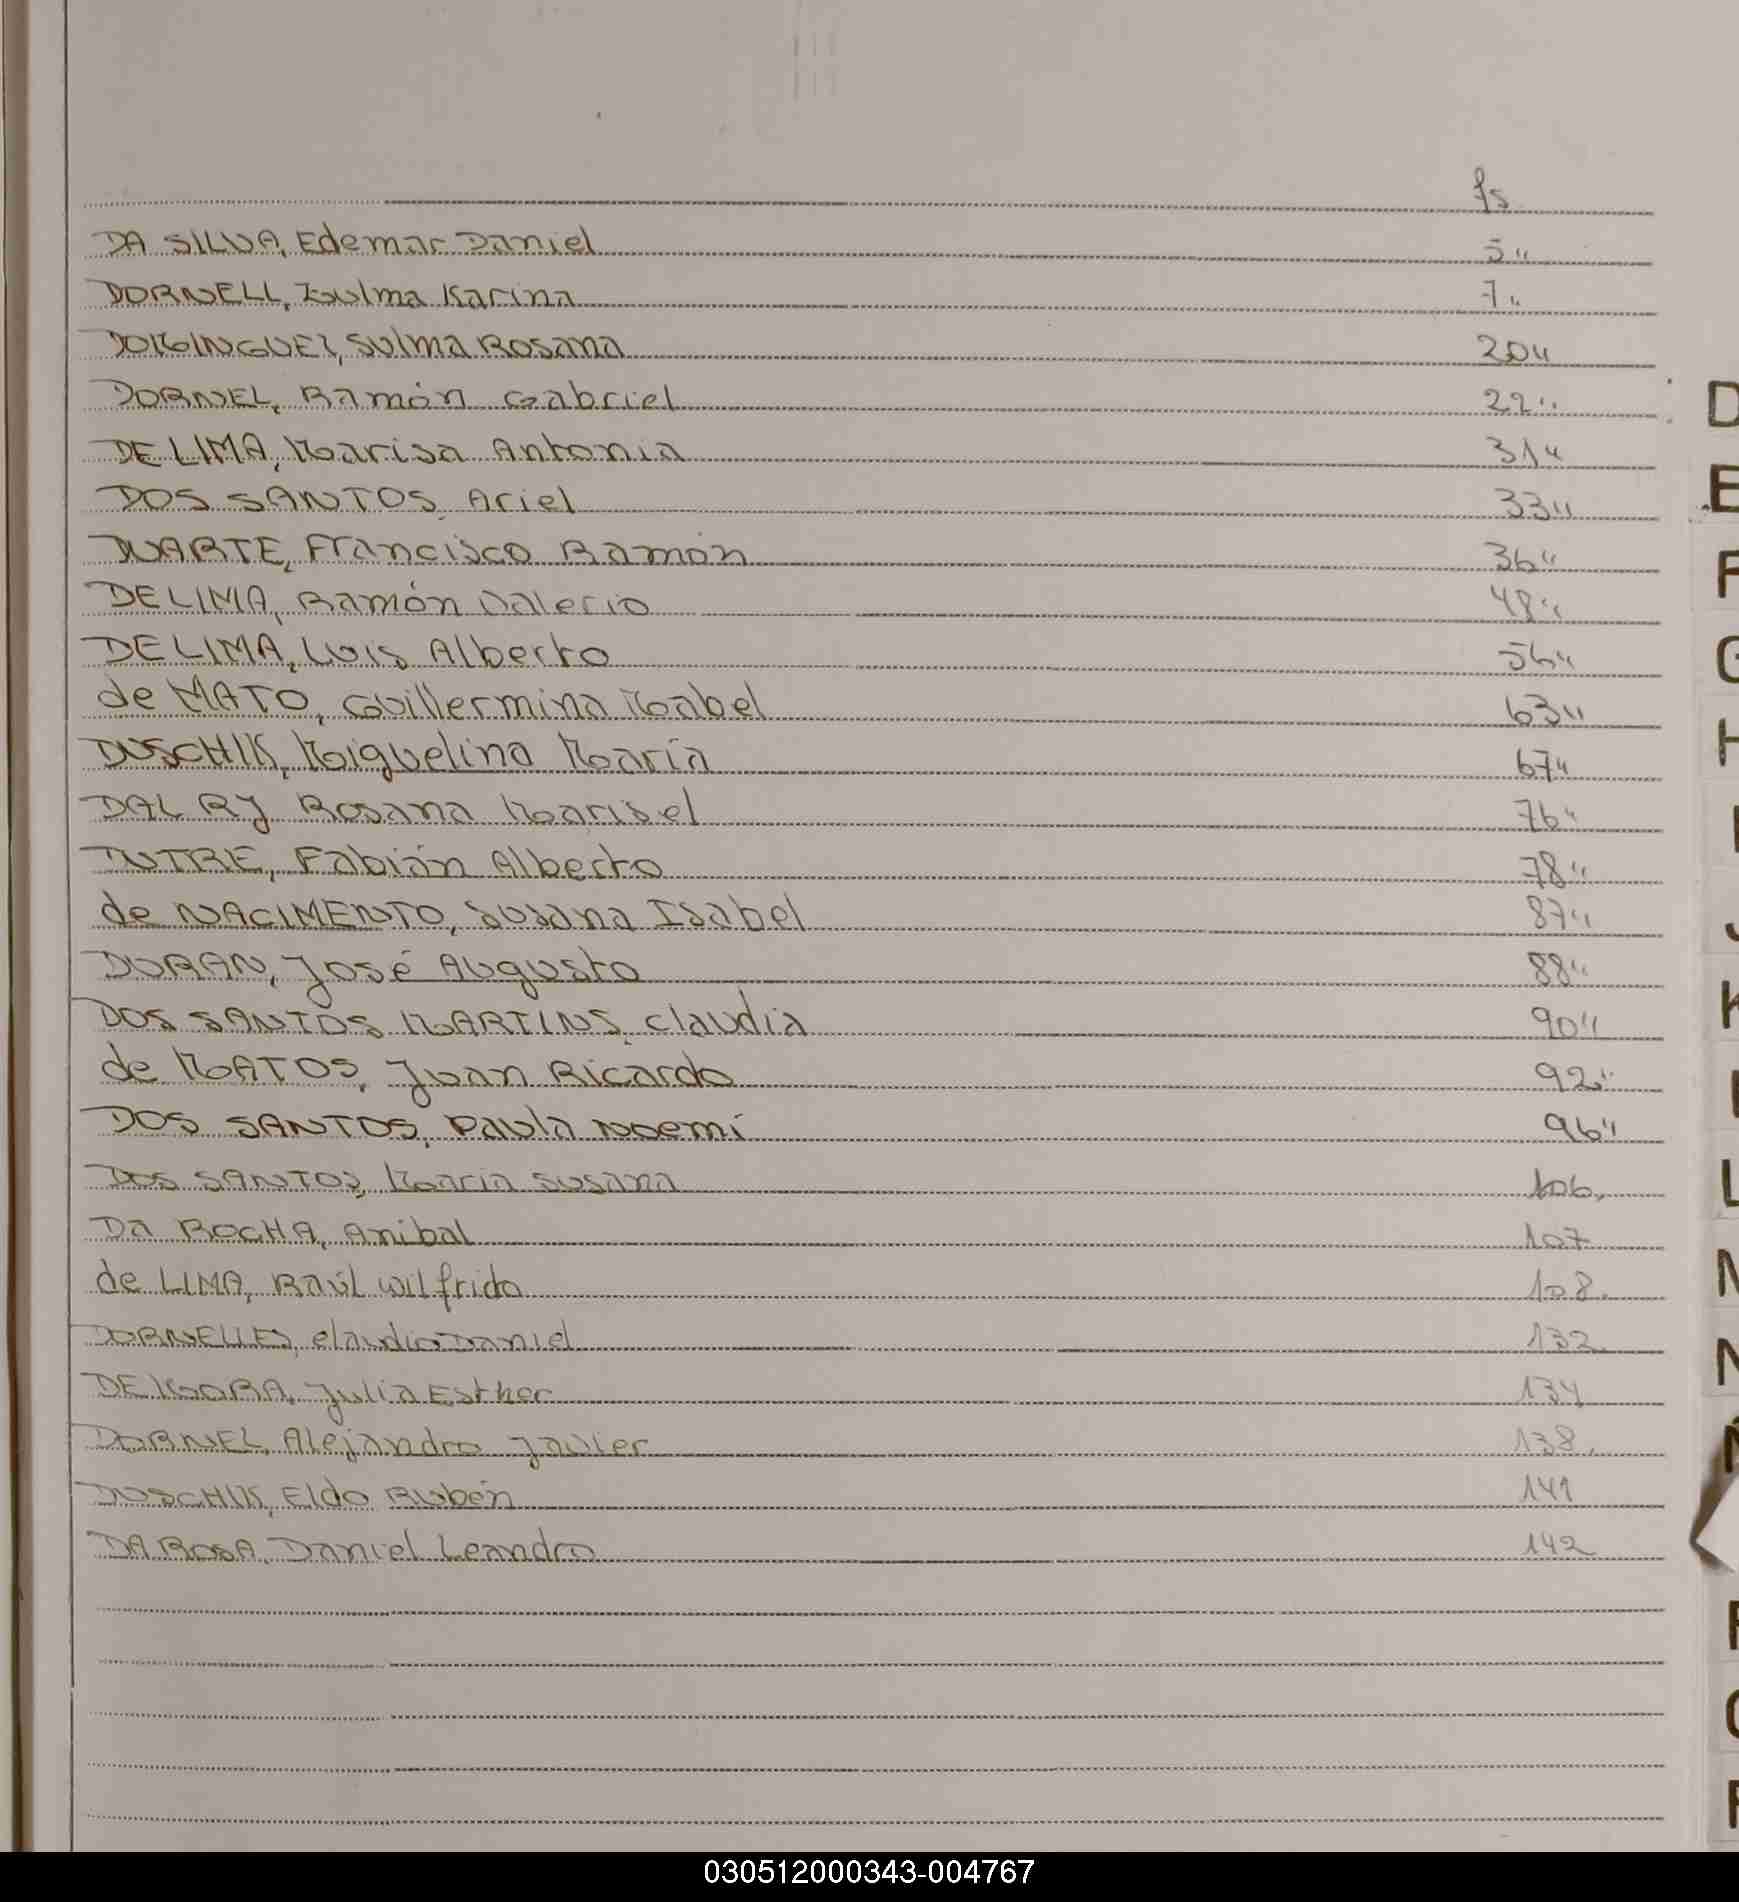 fs
DA SILVA, Edemar Daniel 5"
DORNELL, Zulma Karina 7"
DOMINGUEZ, Sulma Rosana 20"
DORNEL, Ramón Gabriel 22"
DE LIMA, Marisa Antonia 31"
DOS SANTOS, Ariel 33"
DUARTE, Francisco Ramón 36"
DE LIMA, Ramón Valerio 48"
DE LIMA, Luis Alberto 56"
de MATO, Guillermina Mabel 63"
DUSCHIK, Miguelina María 67"
DAL RJ Rosana Marisel 76"
DUTRE, Fabián Alberto 78"
de NACIMENTO, Susana Isabel 87"
DURAN, José Augusto 88"
DOS SANTOS MARTINS, Claudia 90"
de MATOS, Juan Ricardo 92"
DOS SANTOS, Paula Noemí 96"
DOS SANTOS, María Susana 106.
Da ROCHA, Anibal 107
de LIMA, Raúl Wilfrido 108.
DORNELLES, Claudio Daniel 132.
DE MORA, Julia Esther 134
DORNEL, Alejandro Javier 138.
DUSCHIK, Eldo Rubén 141
DA ROSA, Daniel Leandro 142
D
E
F
G
H
I
J
K
L
M
N
030512000343-004767